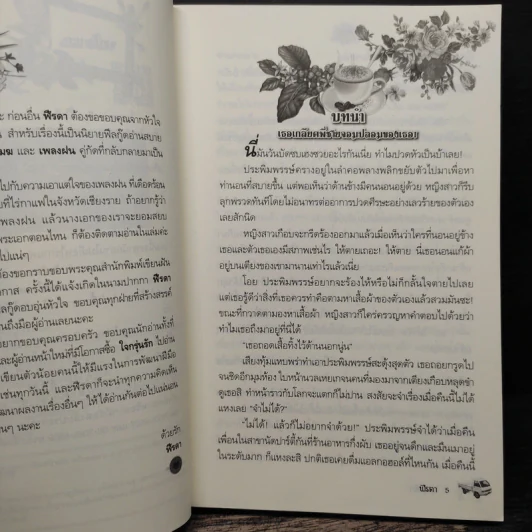 ะ ก่อนอื่น พีรดา ต้องขอขอบคุณจากหัวใจ
สำหรับเรื่องนี้เป็นนิยายฟีลกู๊ดอ่านสบาย
และ เพลงฝน คู่กัดที่กลับกลายมาเป็น
ไปกับความเอาแต่ใจของเพลงฝน ที่เดือดร้อน
ที่ไร่กาแฟในจังหวัดเชียงราย ถ้าอยากรู้ว่า
เพลงฝน แล้วนางเอกของเราจะยอมสยบ
พระเอกตอนไหน ก็ต้องติดตามอ่านในเล่มค่ะ
ไปแน่ๆ
้องขอกราบขอบพระคุณสำนักพิมพ์เขียนฝัน
กาส ครั้งนี้ได้แจ้งเกิดในนามปากกา พีรดา
ลกู๊ดอบอุ่นหัวใจ ขอบคุณทุกฝ่ายที่สร้างสรรค์
นถึงมือผู้อ่านเลยนะคะ
อยากขอบคุณครอบครัว ขอบคุณนักอ่านทั้งที่
และผู้อ่านหน้าใหม่ที่มีโอกาสซื้อ ใจกรุ่นรัก ไปอ่าน
เขียนตัวน้อยคนนี้ให้มีแรงในการพัฒนาฝีมือ
เช่นทุกวันนี้ และพีรดาก็จะนำทุกความคิดเห็น
ฒนาผลงานเรื่องอื่นๆ ให้ได้อ่านกันต่อไปแน่นอน
นๆ นะคะ
ด้วยรัก
พีรดา
บทนำ
เธอเกลียดพี่ชายจอมปลอมของเธอ
นี่มันวันบัดซบเฮงซวยอะไรกันเนี่ย ทำไมปวดหัวเป็นบ้าเลย!
ประพิมพรรษ์ครางอยู่ในลำคอพลางพลิกขยับตัวไปมาเพื่อหา
ท่านอนที่สบายขึ้น แต่พอเห็นว่าด้านข้างมีคนนอนอยู่ด้วย หญิงสาวก็รีบ
ลุกพรวดทันทีโดยไม่อนาทรต่ออาการปวดศีรษะอย่างเลวร้ายของตัวเอง
เลยสักนิด
หญิงสาวเกือบจะกรีดร้องออกมาแล้วเมื่อเห็นว่าใครที่นอนอยู่ข้าง
เธอและตัวเธอเองมีสภาพเช่นไร ให้ตายเถอะ! ให้ตาย นี่เธอนอนแก้ผ้า
อยู่บนเตียงของเขามานานเท่าไรแล้วเนี่ย
โอย ประพิมพรรษ์อยากจะร้องไห้หรือไม่ก็กลั้นใจตายไปเลย
แต่เธอรู้ดีว่าสิ่งที่เธอควรทำคือตามหาเสื้อผ้าของตัวเองแล้วสวมมันซะ!
ขณะที่กวาดตามองหาเสื้อผ้า หญิงสาวก็ใคร่ครวญหาคำตอบไปด้วยว่า
ทำไมเธอถึงมาอยู่ที่นี่ได้
"เธอถอดเสื้อทิ้งไว้ด้านนอกนู่น"
เสียงทุ้มแทบพร่าทำเอาประพิมพรรษ์สะดุ้งสุดตัว เธอถอยกรูดไป
จนชิดอีกมุมห้อง ใบหน้านวลเหยเกจนคนที่มองมาจากเตียงเกือบหลุดขำ
ดูเธอสิ ทำหน้าราวกับโลกจะแตกก็ไม่ปาน สงสัยจะจำเรื่องเมื่อคืนนี้ไม่ได้
แหงเลย "จำไม่ได้?"
"ไม่ได้! แล้วก็ไม่อยากจำด้วย!" ประพิมพรรษ์จำได้ว่าเมื่อคืน
เพื่อนในสาขานัดปาร์ตี้กันที่ร้านอาหารกึ่งผับ เธออยู่จนดึกและมึนเมาอยู่
ในระดับมาก ก็แหงละสิ ปกติเธอเคยดื่มแอลกอฮอล์ที่ไหนกัน เมื่อคืนนี้
พีรดา 5